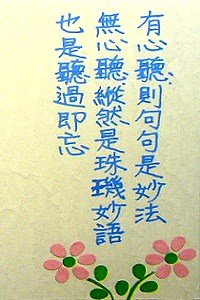 有心聽則句句是妙法
無心聽縱然是珠璣妙語
也是聽過即忘